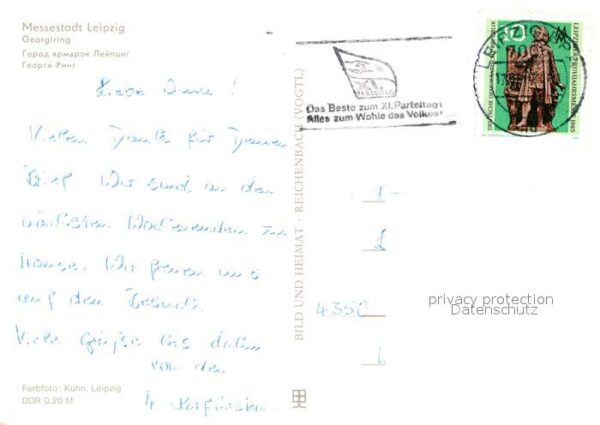 Messestadt Leipzig
Georgiring
Город ярмарок Лейпциг
Георги-Ринг
Liebe Oma!
Vielen Dank für Deinen
Brief. Wir sind an den
nächsten Wochenenden zu
Hause. Wir freuen uns
auf den Besuch.
Viele Grüße bis dahin
von den
4
Farbfoto: Kühn, Leipzig
DDR 0,20 M
BILD UND HEIMAT · REICHENBACH (VOGTL)
XI.
PARTEITAG
Das Beste zum XI. Parteitag!
Alles zum Wohle des Volkes!
LEIPZIG
10
LEIPZIGER FRÜHJAHRSMESSE 1985
DEUTSCHE DEMOKRATISCHE REPUBLIK
4350
privacy protection
Datenschutz